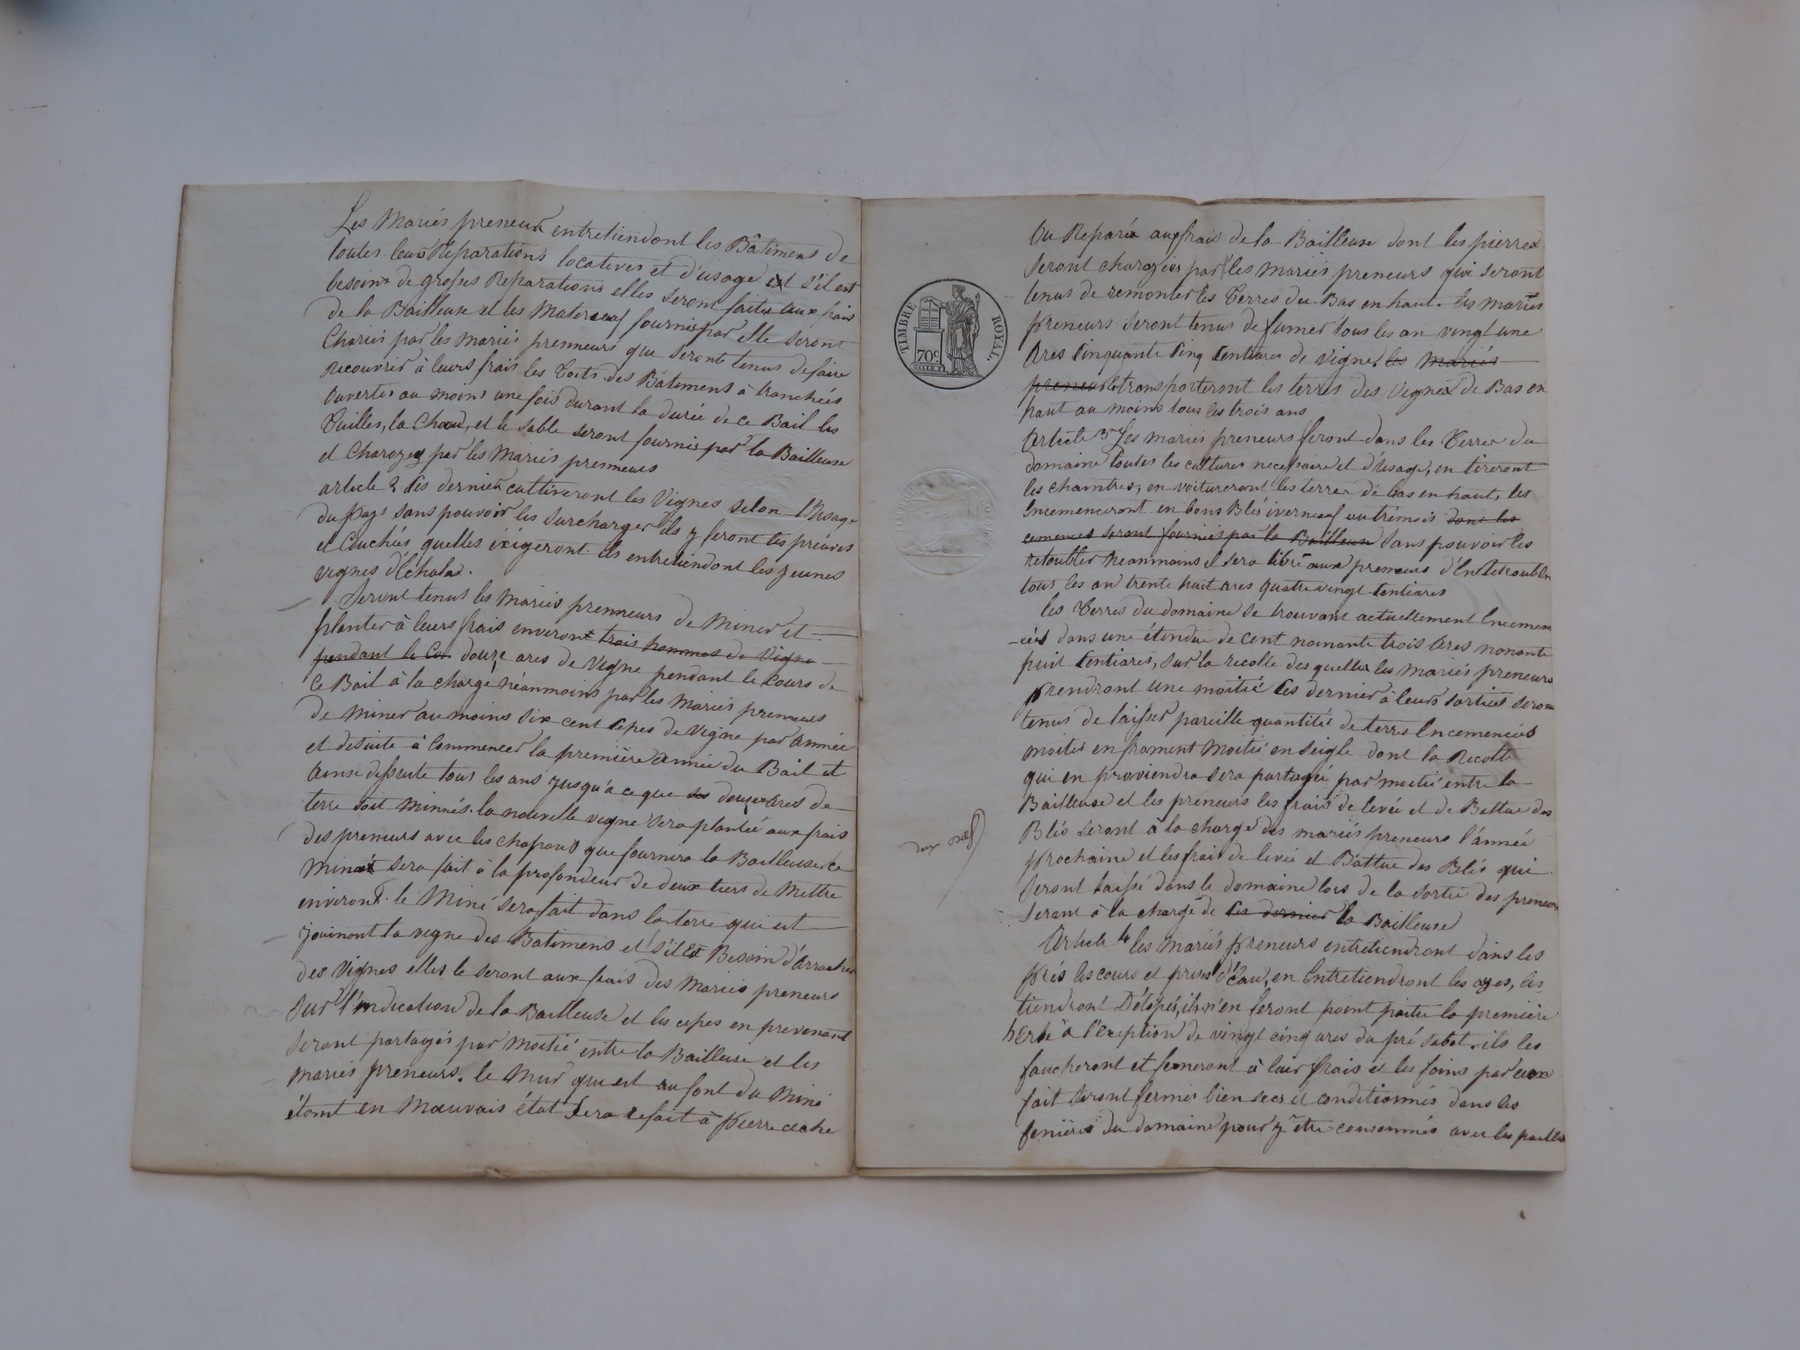 Les Mariés preneur entretiendont les Bâtimens de
toutes leurs Réparations locatives et d'usage et s'il est
besoins de grosses Réparations elles seront faites aux frais
de la Bailleuse et les Materieaux fournis par elle seront
Chariés par les mariés prenneurs qui seronts tenus de faire
recouvrir à leurs frais les Toits des Bâtiment à tranchées
ouvertes au moins une fois durant la durée de ce Bail les
Tuilles, la Chaud, et le sable seront fournis par la Bailleuse
et Charoyes par les Mariés prenneurs
article 2 Ces dernier cultiveront les Vignes selon l'Usage
du pays sans pouvoir les surcharger ils y feront les preuves
et Couchés quelles éxigeront ils entretiendont les jeunes
vignes d'Echalad.
Seront tenus les Mariés prenneurs de Miner et
planter à leurs frais environt trois hommes de Vigne
pendant le Co douze ares de Vigne pendant le cours de
Ce Bail à la charge néanmoins par les Mariés prenneurs
de Miner au moins six cent Cepes de Vigne par année
et desuite à Commencer la première année du Bail et
ainsi dessuite tous les ans jusqu'a ce que douze ares de
terre soit Minnés. la nouvelle vigne sera plantée aux frais
des preneurs avec les chapons que fournira la Bailleuse Ce
Miné sera fait à la profondeur de deux tiers de Mettre
environt. le Miné sera fait dans la terre qui est
joinont la vigne des Batimens et s'il Est Besoin d'Arracher
des Vignes elles le seront aux frais des Mariés preneurs
sur l'indication de la Bailleuse et les cepes en provenant
seront partagés par Moitié entre la Bailleuse et les
Mariés preneurs. le Mur qui est au font du Miné
étant en Mauvais état sera refait à pierre ache
TIMBRE ROYAL
70c
deux
Ou Reparéx aux frais de la Bailleuse dont les pierres
seront chargées par les mariés preneurs qui seront
tenus de remonter les Terres du Bas en haut. les Mariés
preneurs seront tenus de fumer tous les an vingt une
Ares Cinquante Cinq Centiares de vigne. les Mariés
preneurs transporteront les terres des Vignes de Bas en
haut au moins tous les trois ans
Article 3me Les mariés preneurs feront dans les Terres du
domaine toutes les cultures necessaire et d'Usage, en tireront
les chaintres, en voitureront les terres de bas en haut, les
Encemenceront en bons Blés iverneaux ou trémois dont les
cemences seront fournies par la Bailleuse Sans pouvoir les
retoubler Neanmoins il sera libre aux preneurs d'En Retroubler
tous les an trente huit ares quatre vingt Centiares
les Terres du domaine se trouvant actuellement Encemen
-cées dans une étendue de cent nonante trois Ares nonante
huit Centiares, sur la recolte des quelles les mariés preneurs
prendront une moitié Ces dernier à leurs sorties seront
tenus de laisser pareille quantités de terres Encemencés
moities en froment Moitié en Seigle dont la Recolte
qui en proviendra sera partagée par moitié entre la
Bailleuse et les preneurs les frais de levée et de Battue des
Blés seront à la charge des mariés preneurs l'année
prochaine et les frais de levée et Battue des Blés qui
seront laissé dans le domaine lors de la sortie des preneurs
seront à la charge de Ces dernier la Bailleuse
Article 4 les mariés preneurs entretiendront dans les
prés les cours et prises d'eau, en Entretiendront les ayes, les
tiendront Détopés, ils n'en feront point paitre la première
herbe à l'exeption de vingt cinq ares du pré Sabot. ils les
faucheront et feneront à leur frais et les foins par eux
fait seront fermés bien secs et conditionnés dans les
fenières du domaine pour y être consommés avec les pailles